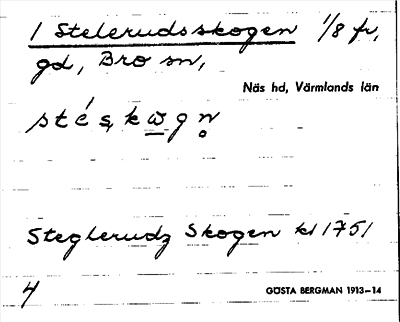 1 Stelerudsskogen 1/8 fr,
gd, Bro sn,
Näs hd, Värmlands län
stéskwgn
Steglerudz Skogen kl 1751
4
GÖSTA BERGMAN 1913-14